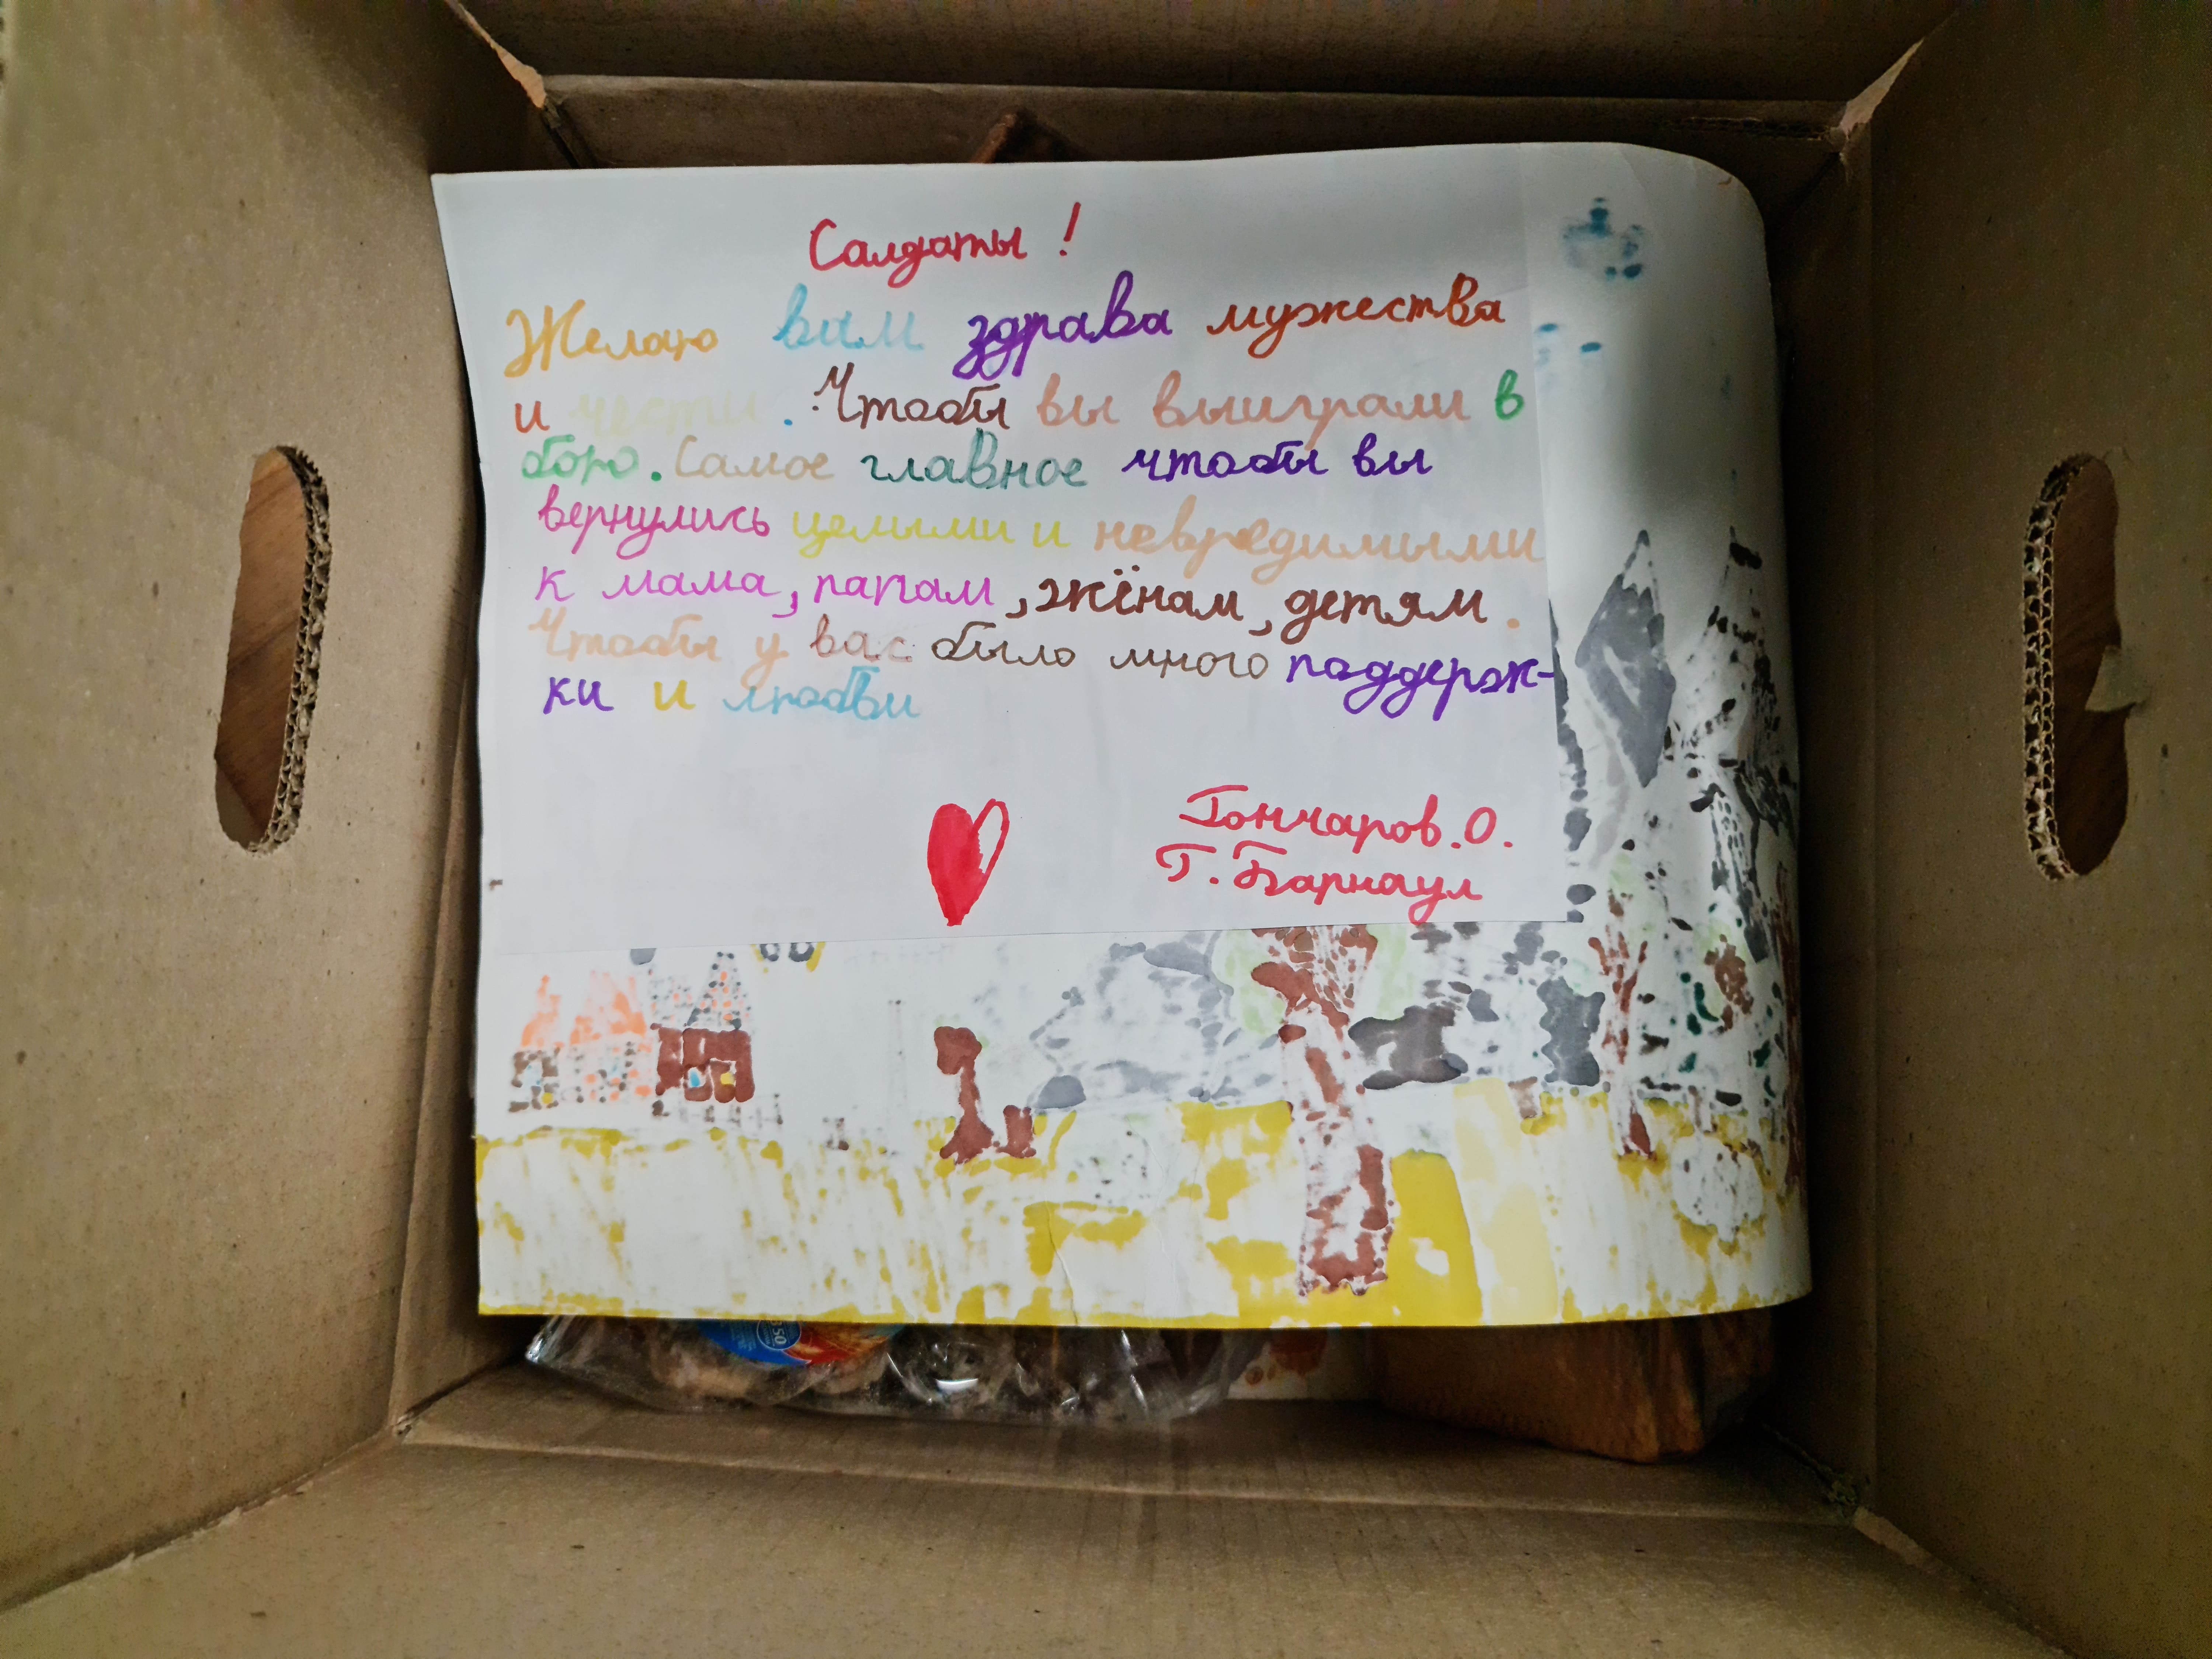 Салдаты !
Желаю вам здрава мужества
и чести . Чтобы вы выиграли в
бою. Самое главное чтобы вы
вернулись целыми и невредимыми
к мама, папам, жёнам, детям.
Чтобы у вас было много поддерж-
ки и любви
Гончаров.О.
Г. Барнаул
350